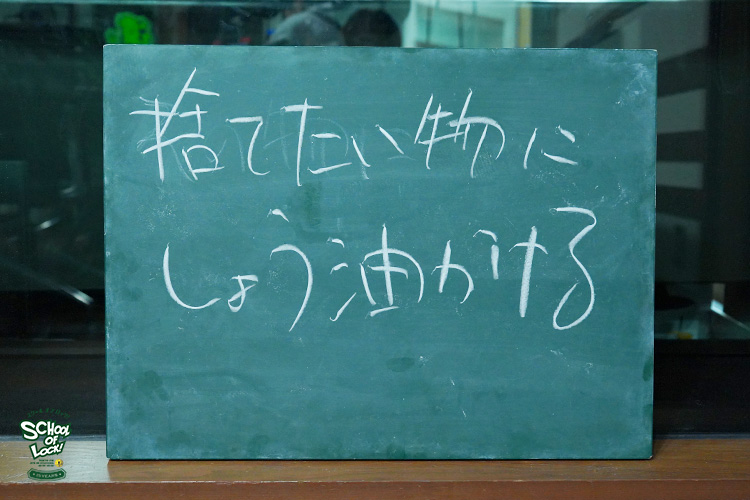 捨てたい物に
しょう油かける
SCHOOL
OF
LOCK!